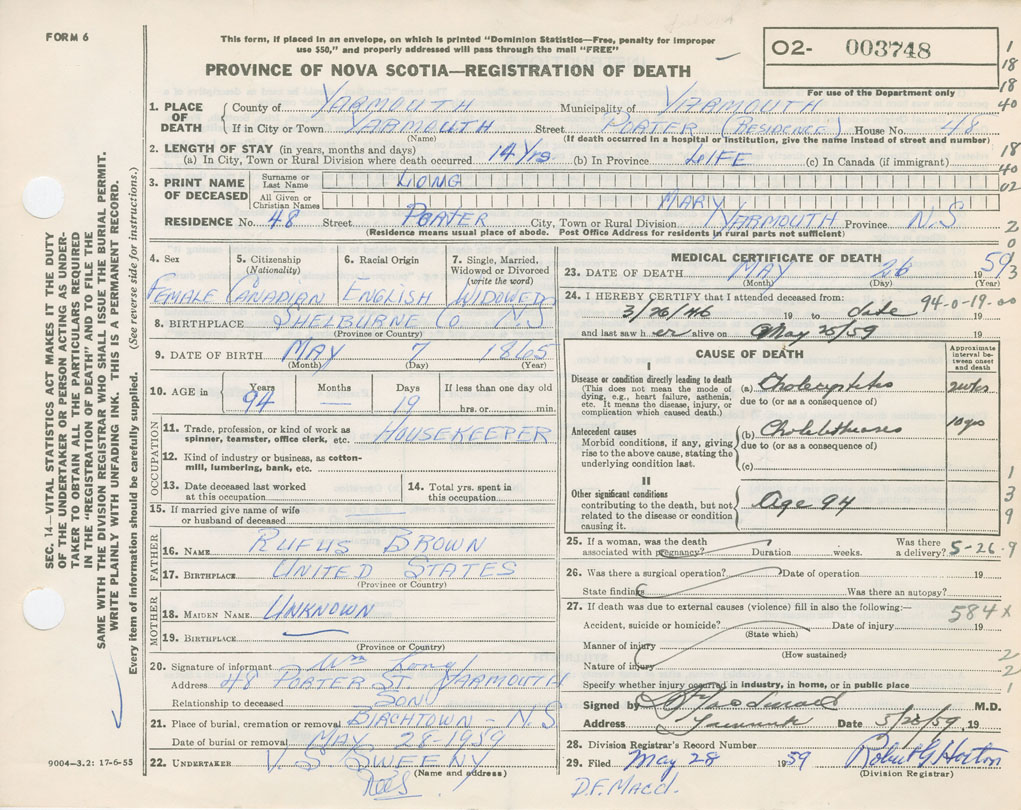 FORM 6
This form, if placed in an envelope, on which is printed "Dominion Statistics—Free, penalty for improper
use $50," and properly addressed will pass through the mail "FREE"
O2- 003748
For use of the Department only
PROVINCE OF NOVA SCOTIA—REGISTRATION OF DEATH
1. PLACE OF DEATH
County of YARMOUTH Municipality of YARMOUTH
If in City or Town YARMOUTH Street PORTER (RESIDENCE) House No. 48
(Name) (If death occurred in a hospital or institution, give the name instead of street and number)
2. LENGTH OF STAY (in years, months and days)
(a) In City, Town or Rural Division where death occurred 14 Yrs (b) In Province LIFE (c) In Canada (if immigrant)
3. PRINT NAME OF DECEASED
Surname or Last Name LONG
All Given or Christian Names MARY
RESIDENCE No. 48 Street PORTER City, Town or Rural Division YARMOUTH Province N.S
(Residence means usual place of abode. Post Office Address for residents in rural parts not sufficient)
4. Sex
FEMALE
5. Citizenship
(Nationality)
CANADIAN
6. Racial Origin
ENGLISH
7. Single, Married,
Widowed or Divorced
(write the word)
WIDOWED
8. BIRTHPLACE SHELBURNE Co N.S
(Province or Country)
9. DATE OF BIRTH MAY 7 1865
(Month) (Day) (Year)
10. AGE in
Years 94
Months —
Days 19
If less than one day old
hrs. or min.
OCCUPATION
11. Trade, profession, or kind of work as
spinner, teamster, office clerk, etc. HOUSEKEEPER
12. Kind of industry or business, as cotton-
mill, lumbering, bank, etc.
13. Date deceased last worked
at this occupation
14. Total yrs. spent in
this occupation
15. If married give name of wife
or husband of deceased
FATHER
16. NAME RUFUS BROWN
17. BIRTHPLACE UNITED STATES
(Province or Country)
MOTHER
18. MAIDEN NAME UNKNOWN
19. BIRTHPLACE
(Province or Country)
20. Signature of informant Wm Long
Address 48 PORTER ST. YARMOUTH
Relationship to deceased SON
21. Place of burial, cremation or removal BIRCHTOWN - N.S
Date of burial or removal MAY 28-1959
22. UNDERTAKER V S SWEENY
(Name and address)
MEDICAL CERTIFICATE OF DEATH
23. DATE OF DEATH MAY 26 1959
(Month) (Day) (Year)
24. I HEREBY CERTIFY that I attended deceased from: 94-0-19-00
3/26/46 19 to date 19
and last saw her alive on May 25/59 19
CAUSE OF DEATH
Approximate interval between onset and death
I
Disease or condition directly leading to death
(This does not mean the mode of
dying, e.g., heart failure, asthenia,
etc. It means the disease, injury, or
complication which caused death.)
(a) Cholecystitis 2 wks
due to (or as a consequence of)
Antecedent causes
Morbid conditions, if any, giving
rise to the above cause, stating the
underlying condition last.
(b) Cholelithiasis 10 yrs
due to (or as a consequence of)
(c)
II
Other significant conditions
contributing to the death, but not
related to the disease or condition
causing it.
Age 94
25. If a woman, was the death
associated with pregnancy? Duration weeks. Was there
a delivery? 5-26-9
26. Was there a surgical operation? Date of operation 19
State findings Was there an autopsy?
27. If death was due to external causes (violence) fill in also the following:—
584x
Accident, suicide or homicide? Date of injury 19
(State which)
Manner of injury
(How sustained)
Nature of injury
Specify whether injury occurred in industry, in home, or in public place
Signed by M.D.
Address Yarmouth Date 5/28/59 19
28. Division Registrar's Record Number
29. Filed May 28 1959 Robert G Horton
(Division Registrar)
D.F. Macd.
9004—3.2: 17-6-55
SEC. 14—VITAL STATISTICS ACT MAKES IT THE DUTY
OF THE UNDERTAKER OR PERSON ACTING AS UNDER-
TAKER TO OBTAIN ALL THE PARTICULARS REQUIRED
IN THE "REGISTRATION OF DEATH" AND TO FILE THE
SAME WITH THE DIVISION REGISTRAR WHO SHALL ISSUE THE BURIAL PERMIT.
WRITE PLAINLY WITH UNFADING INK. THIS IS A PERMANENT RECORD.
Every item of information should be carefully supplied. (See reverse side for instructions.)
1
18
18
40
18
40
02
2
0
3
1
3
9
2
2
1